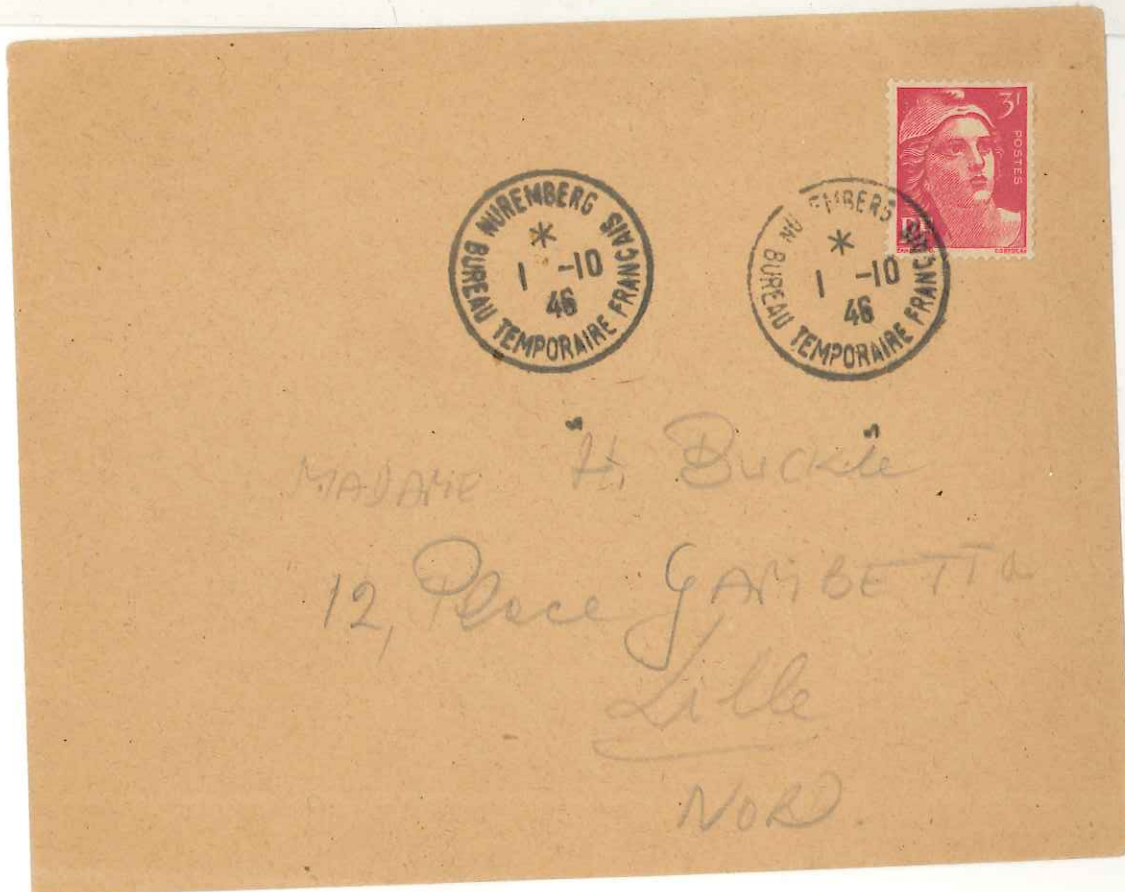 3F
POSTES
RF
NUREMBERG BUREAU TEMPORAIRE FRANÇAIS
*
1 -10
46
NUREMBERG BUREAU TEMPORAIRE FRANÇAIS
*
1 -10
46
MADAME H. Buckle
12, Place GAMBETTA
Lille
NORD